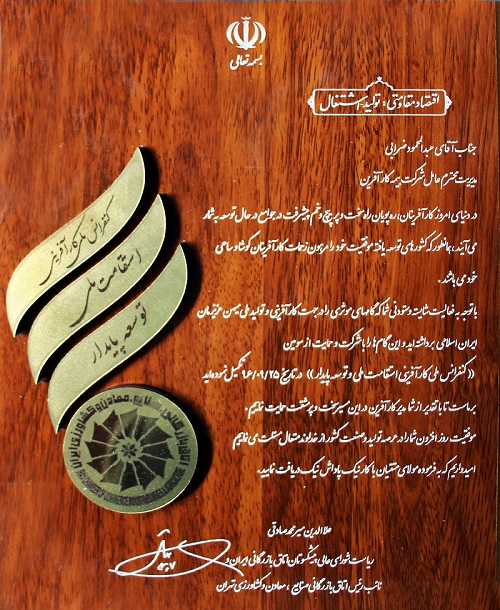 بسمه تعالی
اقتصاد مقاومتی: تولید، اشتغال
جناب آقای عبدالمحمود ضرابی
مدیریت محترم عامل شرکت بیمه کارآفرین
در دنیای امروز کارآفرینان، ره پویان راه سخت و پر پیچ و خم پیشرفت در جوامع در حال توسعه به شمار
می آیند، همانطور که کشورهای توسعه یافته موفقیت خود را مرهون زحمات کارآفرینان کوشا و ساعی
خود می باشند.
با توجه به فعالیت شایسته و ستودنی شما که گامهای موثری را در جهت کارآفرینی و تولید ملی میهن عزیزمان
ایران اسلامی برداشته اید و این گام ها را با شرکت و حمایت از سومین
«کنفرانس ملی کارآفرینی استقامت ملی و توسعه پایدار» در تاریخ ۹۶/۰۹/۲۵ تکمیل نموده اید
بر ماست تا با تقدیر از شما مدیر کارآفرین در این مسیر سخت و پر مشقت حمایت نماییم.
موفقیت روز افزون شما در عرصه تولید و صنعت کشور از خداوند متعال مسئلت می نماییم
امیدواریم که به فرموده مولای متقیان با کار نیک پاداش نیک دریافت نمایید.
علاءالدین میرمحمدصادقی
ریاست شورای عالی پیشکسوتان اتاق بازرگانی ایران و
نائب رئیس اتاق بازرگانی صنایع، معادن و کشاورزی تهران
کنفرانس ملی کارآفرینی
استقامت ملی
توسعه پایدار